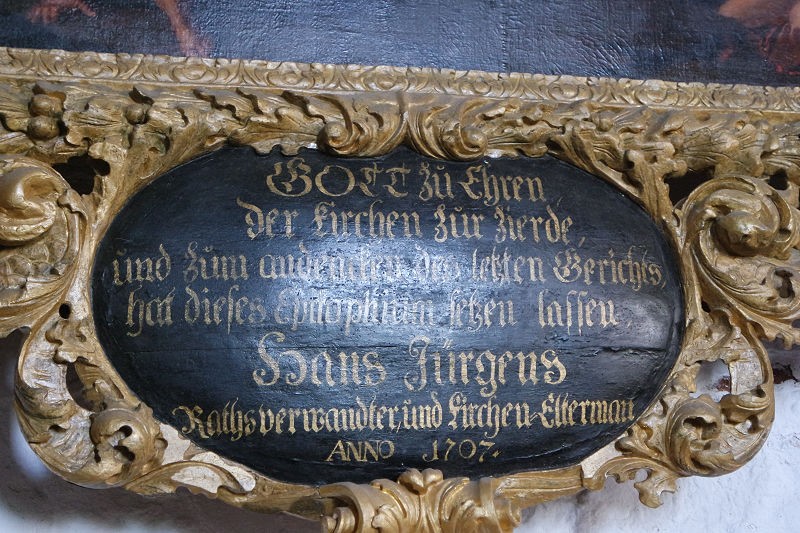 GOTT zů Ehren,
der Kirchen zůr Zierde,
und zům andencken des letzten Gerichts,
hat dieses Epitophium setzen lassen,
Hans Jürgens
Rathsverwandter, und Kirchen-Elterman
ANNO 1707.